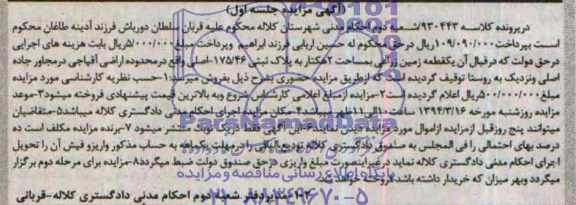 (آگهی مزایده جلسه اول)
درپرونده کلاسه ۹۳۰۴۴۳/شعبه دوم احکام مدنی شهرستان کلاله محکوم علیه قربان سلطان دورباش فرزند آدینه طاغان محکوم
است بپرداخت ۱۰۹/۰۹۰/۰۰۰ریال درحق محکوم له حسن اربابی فرزند ابراهیم وپرداخت مبلغ ۵/۰۰۰/۰۰۰ریال بابت هزینه های اجرایی
درحق دولت که درقبال آن یکقطعه زمین زراعی بمساحت ۲هکتار به پلاک ثبتی ۱۷۵/۴۶-اصلی واقع درمحدوده اراضی آقیاجی درمجاور جاده
اصلی ونزدیک به روستا توقیف گردیده است که ازطریق مزایده حضوری بشرح ذیل بفروش میرسد:۱-حسب نظریه کارشناسی مورد مزایده
مبلغ ۵۰۰/۰۰۰/۰۰۰ریال اعلام گردیده است ۲-مزایده ازمبلغ اعلامی کارشناس شروع وبه بالاترین قیمت پیشنهادی فروخته میشود ۳-موعد
مزایده روزشنبه مورخه ۱۳۹۴/۳/۱۶ ساعت ۱۰الی ۱۱ظهر میباشد ۴-مکان مزایده اجرای احکام مدنی دادگستری کلاله میباشد ۵-متقاضیان
میتوانند پنج روزقبل ازمزایده ازاموال مورد مزایده دیدن نمایند ۶-این آگهی فقط دریک نوبت منتشر میشود ۷-برنده مزایده مکلف است ده
درصد بهای احتمالی را فی المجلس به صندوق دادگستری کلاله تودیع والباقی را درمهلت یکماهه به حساب مذکور واریزو فیش آن را تحویل
اجرای احکام مدنی دادگستری کلاله نماید درغیراینصورت مبلغ واریزی درحق صندوق دولت ضبط میگردد ۸-مزایده برای مرحله دوم برگزار
میگردد وبهر میزان که خریدار داشته باشد فروخته خواهد شد.
۱۹۲-مدیردفتر شعبه دوم احکام مدنی دادگستری کلاله-قربانی
ParsNamadData
پایگاه اطلاع رسانی مناقصه و مزایده